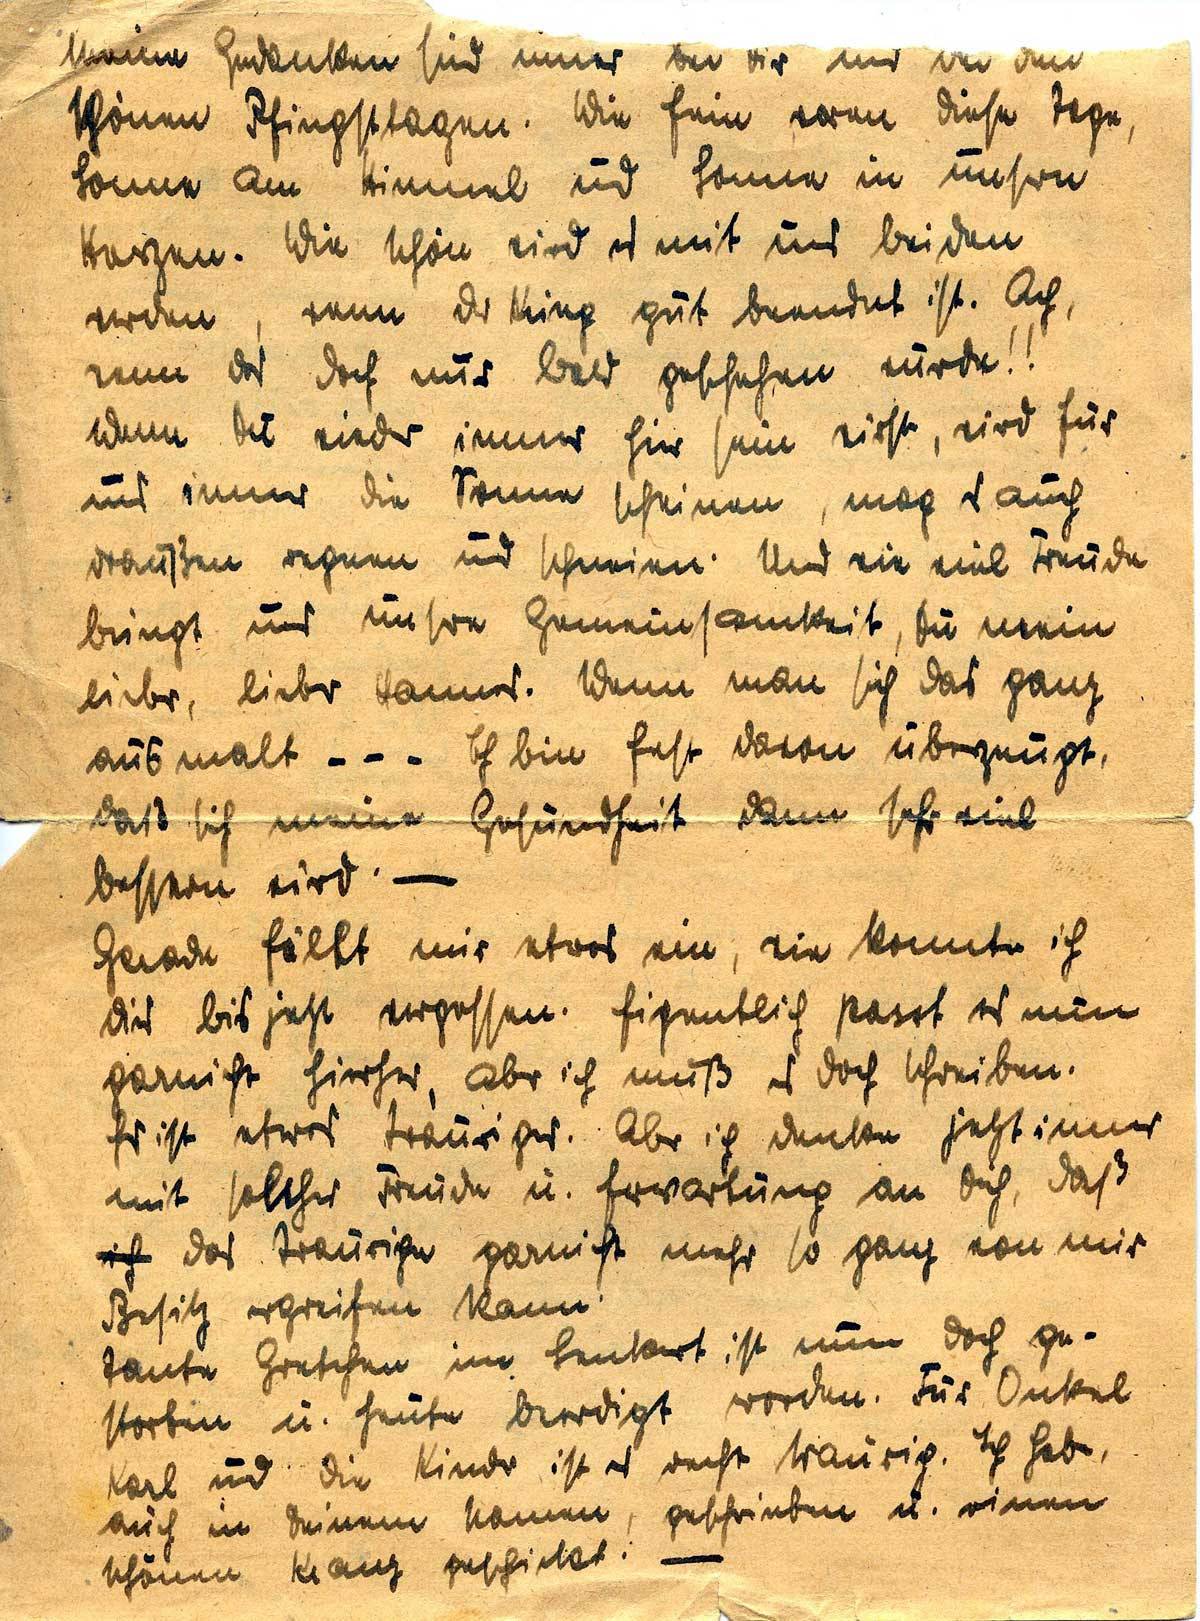 Meine Gedanken sind immer bei dir und bei den
schönen Pfingsttagen. Wie fein waren diese Tage,
Sonne am Himmel und Sonne in unsern
Herzen. Wie schön wird es mit uns beiden
werden, wenn der Krieg gut beendet ist. Ach,
wenn das doch nur bald geschehen würde!!
Wenn du wieder immer hier sein wirst, wird für
uns immer die Sonne scheinen, mag es auch
draußen regnen und schneien. Und wie viel Freude
bringt uns unsre Gemeinsamkeit, du mein
lieber, lieber Hannes. Wenn man sich das ganz
ausmalt --- Ich bin fest davon überzeugt,
daß sich meine Gesundheit dann sehr viel
bessern wird. —
Gerade fällt mir etwas ein, wie konnte ich
dies bis jetzt vergessen. Eigentlich passt es nun
garnicht hierher, aber ich muß es doch schreiben.
Es ist etwas trauriges. Aber ich denke jetzt immer
mit solcher Freude u. Erwartung an dich, daß
ich das traurige garnicht mehr so ganz von mir
Besitz ergreifen kann.
Tante Gretchen im ist nun doch ge-
storben u. heute beerdigt worden. Für Onkel
Karl und die Kinder ist es recht traurig. Ich habe,
auch in deinem Namen, geschrieben u. einen
schönen Kranz geschickt. —